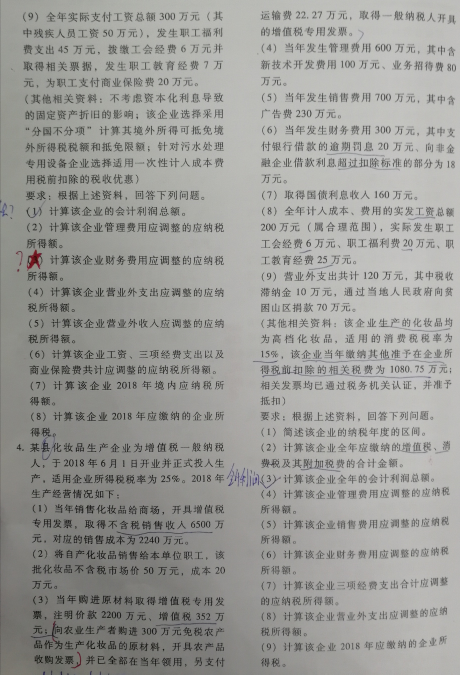 (9) 全年实际支付工资总额 300 万元(其
中残疾人员工资 50 万元),发生职工福利
费支出 45 万元,拨缴工会经费 6 万元并
取得相关票据,发生职工教育经费 7 万
元,为职工支付商业保险费 20 万元。
(其他相关资料:不考虑资本化利息导致
的固定资产折旧的影响;该企业选择采用
“分国不分项”计算其境外所得可抵免境
外所得税税额和抵免限额;针对污水处理
专用设备企业选择适用一次性计入成本费
用税前扣除的税收优惠)
要求:根据上述资料,回答下列问题。
(1) 计算该企业的会计利润总额。
(2) 计算该企业管理费用应调整的应纳税
所得额。
(3) 计算该企业财务费用应调整的应纳税
所得额。
(4) 计算该企业营业外支出应调整的应纳
税所得额。
(5) 计算该企业营业外收入应调整的应纳
税所得额。
(6) 计算该企业工资、三项经费支出以及
商业保险费共计应调整的应纳税所得额。
(7) 计算该企业 2018 年境内应纳税所
得额。
(8) 计算该企业 2018 年应缴纳的企业所
得税。
4. 某县化妆品生产企业为增值税一般纳税
人,于 2018 年 6 月 1 日开业并正式投入生
产,适用企业所得税税率为 25%。2018 年
生产经营情况如下:
(1) 当年销售化妆品给商场,开具增值税
专用发票,取得不含税销售收入 6500 万
元,对应的销售成本为 2240 万元。
(2) 将自产化妆品销售给本单位职工,该
批化妆品不含税市场价 50 万元,成本 20
万元。
(3) 当年购进原材料取得增值税专用发
票,注明价款 2200 万元、增值税 352 万
元;向农业生产者购进 300 万元免税农产
品作为生产化妆品的原材料,开具农产品
收购发票,并已全部在当年领用,另支付
运输费 22.27 万元,取得一般纳税人开具
的增值税专用发票。
(4) 当年发生管理费用 600 万元,其中含
新技术开发费用 100 万元、业务招待费 80
万元。
(5) 当年发生销售费用 700 万元,其中含
广告费 230 万元。
(6) 当年发生财务费用 300 万元,其中支
付银行借款的逾期罚息 20 万元、向非金
融企业借款利息超过扣除标准的部分为 18
万元。
(7) 取得国债利息收入 160 万元。
(8) 全年计入成本、费用的实发工资总额
200 万元(属合理范围),实际发生职工
工会经费 6 万元、职工福利费 20 万元、职
工教育经费 25 万元。
(9) 营业外支出共计 120 万元,其中税收
滞纳金 10 万元,通过当地人民政府向贫
困山区捐款 70 万元。
(其他相关资料:该企业生产的化妆品均
为高档化妆品,适用的消费税税率为
15%,该企业当年缴纳其他准予在企业所
得税前扣除的相关税费为 1080.75 万元;
相关发票均已通过税务机关认证,并准予
抵扣)
要求:根据上述资料,回答下列问题。
(1) 简述该企业的纳税年度的区间。
(2) 计算该企业全年应缴纳的增值税、消
费税及其附加税费的合计金额。
(3) 计算该企业全年的会计利润总额。
(4) 计算该企业管理费用应调整的应纳税
所得额。
(5) 计算该企业销售费用应调整的应纳税
所得额。
(6) 计算该企业财务费用应调整的应纳税
所得额。
(7) 计算该企业三项经费支出合计应调整
的应纳税所得额。
(8) 计算该企业营业外支出应调整的应纳
税所得额。
(9) 计算该企业 2018 年应缴纳的企业所
得税。